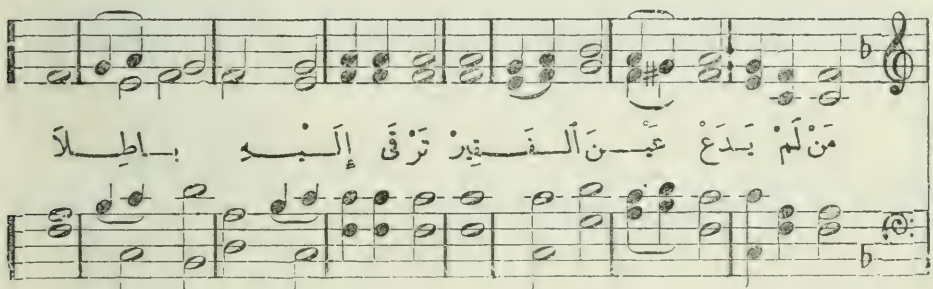 مَنْ لَمْ يَدَعْ عَيْنَ ٱلْفَقِيرْ تَرْقَى إِلَيْهِ بَاطِلاَ